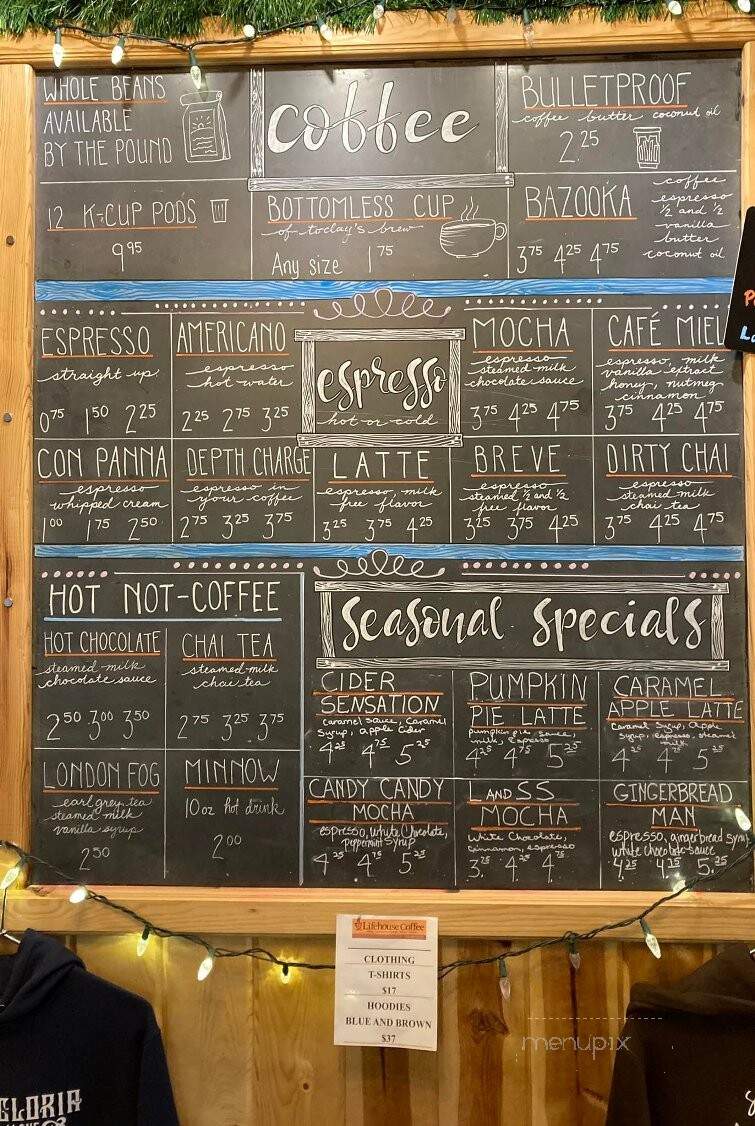 WHOLE BEANS
AVAILABLE
BY THE POUND
coffee
BULLETPROOF
coffee butter coconut oil
2.25
12 K-CUP PODS
9 95
BOTTOMLESS CUP
of today's brew
Any size 1 75
BAZOOKA
3 75 4 25 4 75
coffee
espresso
½ and ½
vanilla
butter
coconut oil
ESPRESSO
straight up
0 75 1 50 2 25
AMERICANO
espresso
hot water
2 25 2 75 3 25
espresso
hot or cold
MOCHA
espresso
steamed milk
chocolate sauce
3 75 4 25 4 75
CAFÉ MIEL
espresso, milk
vanilla extract
honey, nutmeg
cinnamon
3 75 4 25 4 75
CON PANNA
espresso
whipped cream
1 00 1 75 2 50
DEPTH CHARGE
espresso in
your coffee
2 75 3 25 3 75
LATTE
espresso, milk
free flavor
3 25 3 75 4 25
BREVE
espresso
steamed ½ and ½
free flavor
3 25 3 75 4 25
DIRTY CHAI
espresso
steamed milk
chai tea
3 75 4 25 4 75
HOT NOT-COFFEE
HOT CHOCOLATE
steamed milk
chocolate sauce
2 50 3 00 3 50
CHAI TEA
steamed milk
chai tea
2 75 3 25 3 75
LONDON FOG
earl grey tea
steamed milk
vanilla syrup
2 50
MINNOW
10 oz hot drink
2 00
Seasonal Specials
CIDER
SENSATION
caramel sauce, caramel
syrup, apple cider
4 25 4 75 5 25
PUMPKIN
PIE LATTE
pumpkin pie, sauce,
milk, espresso
4 25 4 75 5 25
CARAMEL
APPLE LATTE
Caramel Syrup, Apple
Syrup, espresso, steamed
milk
4 25 4 75 5 25
CANDY CANDY
MOCHA
espresso, white Chocolate,
peppermint syrup
4 25 4 75 5 25
LandSS
MOCHA
White Chocolate,
Cinnamon, espresso
3 75 4 25 4 75
GINGERBREAD
MAN
espresso, gingerbread syrup
white chocolate sauce
4.25 4.75 5.25
Lifehouse Coffee
CLOTHING
T-SHIRTS
$17
HOODIES
BLUE AND BROWN
$37
menupix